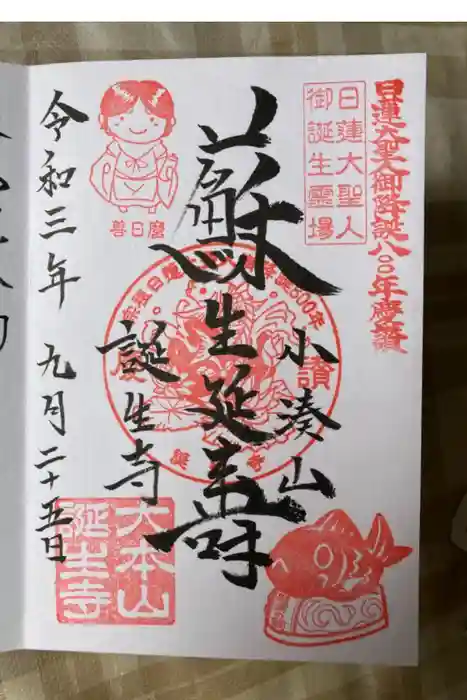 日蓮大聖人御降誕八〇〇年慶讃
日蓮大聖人
御誕生霊場
讃
小湊山
蘇生延寿
誕生寺
善日麿
大本山
誕生寺
令和三年 九月二十五日